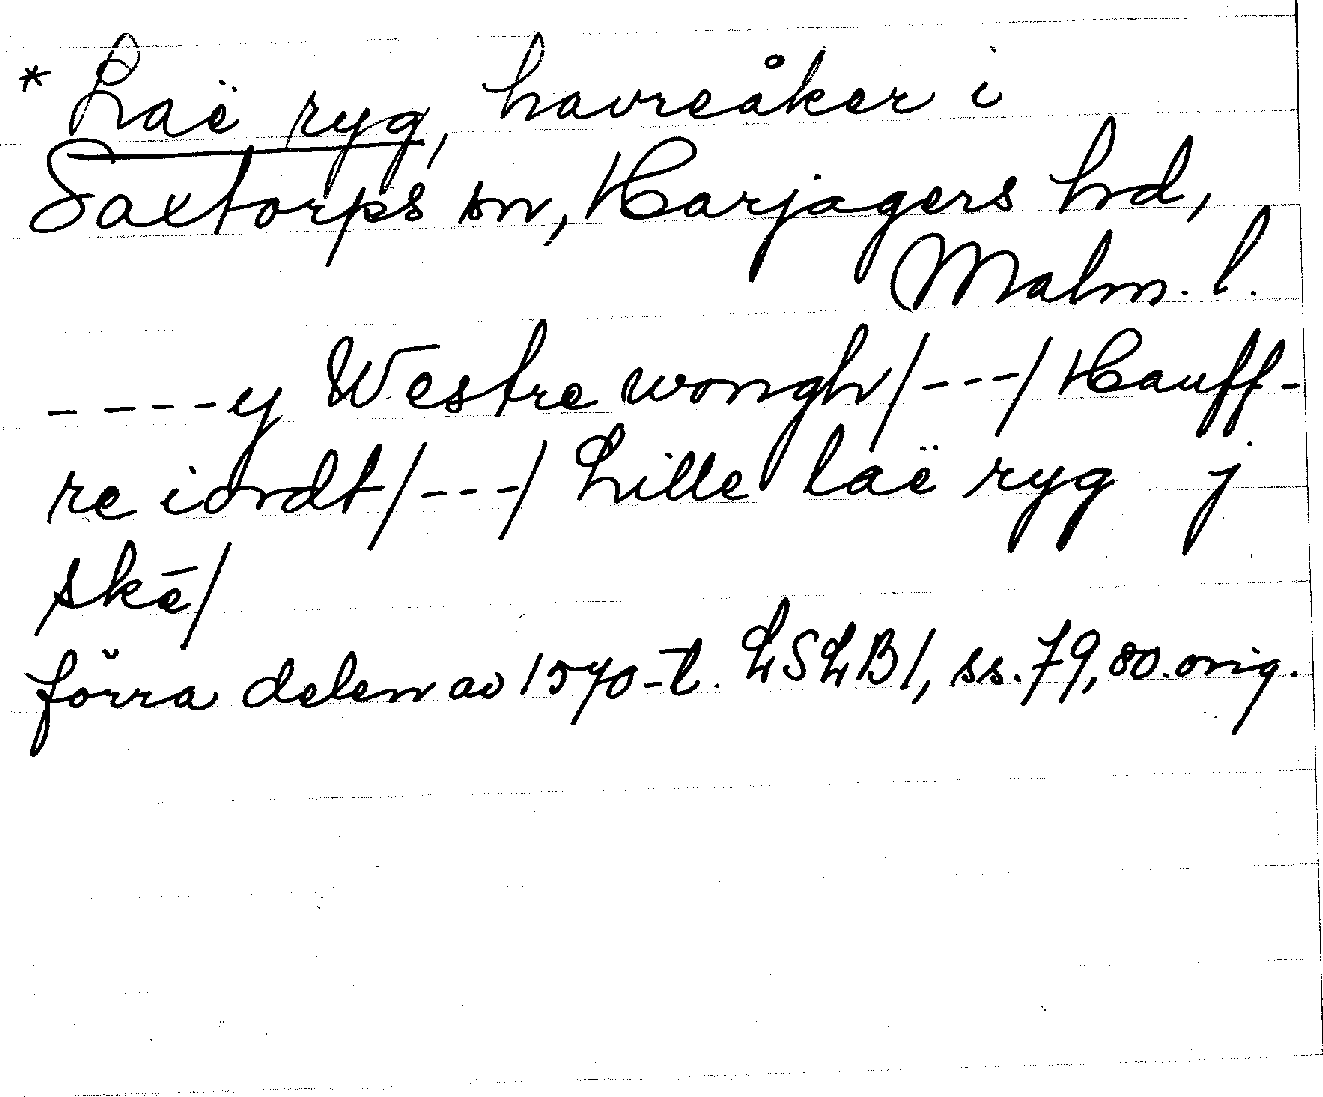 * Laë ryg, havreåker i
Saxtorps sn, Harjagers hd,
Malm. l.
----y Westre wongh/---/Hauff-
re iordt/---/Lille laë ryg j
skē/
förra delen av 1570-t. LSLB1, ss. 79, 80. orig.